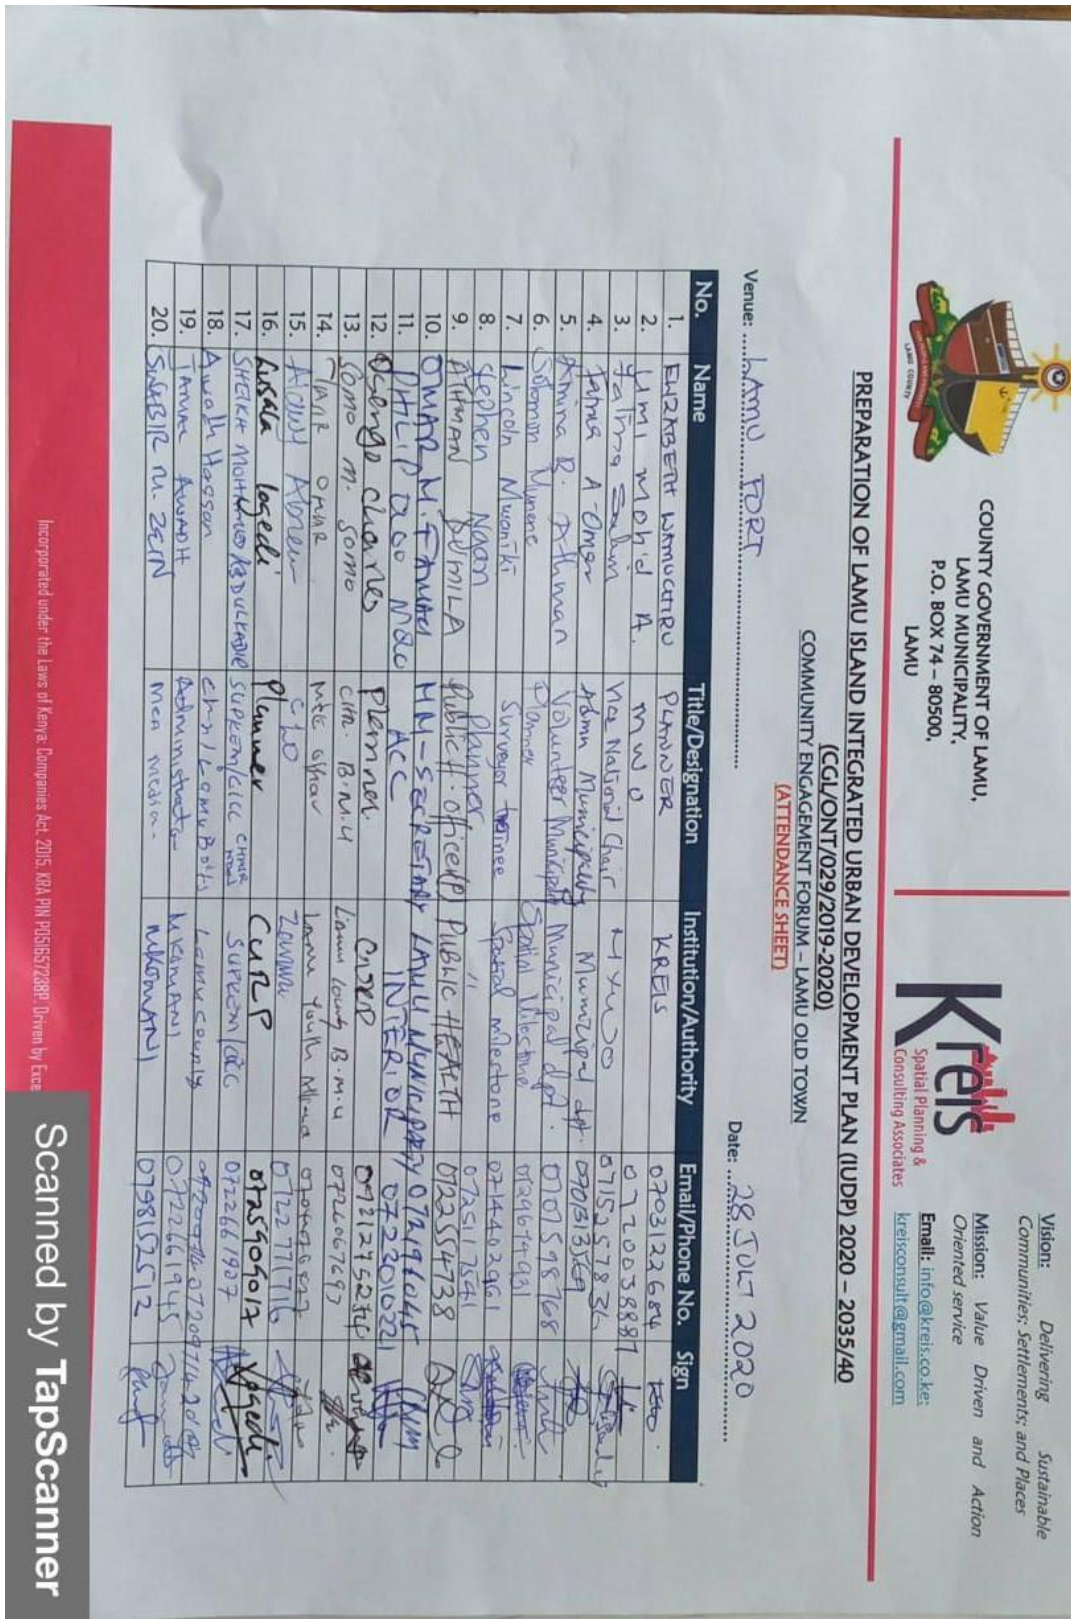 COUNTY GOVERNMENT OF LAMU,
LAMU MUNICIPALITY,
P.O. BOX 74 – 80500,
LAMU
LAMU COUNTY
Kreis
Spatial Planning &
Consulting Associates
Vision: Delivering Sustainable
Communities; Settlements; and Places
Mission: Value Driven and Action
Oriented service
Email: info@kreis.co.ke;
kreisconsult@gmail.com
PREPARATION OF LAMU ISLAND INTEGRATED URBAN DEVELOPMENT PLAN (IUDP) 2020 – 2035/40
(CGL/ONT/029/2019-2020)
COMMUNITY ENGAGEMENT FORUM – LAMU OLD TOWN
(ATTENDANCE SHEET)
Venue: LAMU FORT Date: 28 JULY 2020
No. Name Title/Designation Institution/Authority Email/Phone No. Sign
1. ELIZABETH WAMUCHIRU PLANNER KREIS 0703122684
2. UMI Moh'd A. MWO 0720038887
3. Fathma Salim Vice National Chair MYWO 0715257836
4. Fatma A. Omar Admn Municipality Municipal dpt. 0701313569
5. Amina B. Athman Volunteer Municipal Municipal dpt. 0707598768
6. Solomon Munene Planner Spatial Milestone 0729674931
7. Lincoln Mwaniki Surveyor trainee Spatial milestone 0714402961
8. Stephen Ngan Planner " 0725117541
9. ATHMAN DUMILA Public H. officer(P) PUBLIC HEALTH 0722554738
10. OMAR M. FAMAU MM-SECRETARY LAMU MUNICIPALITY 072196045
11. PHILIP ACC INTERIOR 0722301022
12. Osengo Charles Planner 0721275254
13. Somo M. Somo B.M.U Lamu County B.M.U 0726067693
14. TIANR OMAR Lamu Youth
15. 0722771716
16. Lusala logedi Planner CURP 0725909017
17. SHEIKH MOHAMED ABDULKADIR SUPKEM/CICC CHAIR SUPKEM/CICC 0722661907
18. Awadh Hassan Lamu county 0720971420
19. AWADH Administrator MKOMANI 0722661945
20. SHABIR M. ZEIN Men media. MKOMANI 0798152512
Incorporated under the Laws of Kenya: Companies Act, 2015. KRA PIN P051657238P. Driven by Exce
Scanned by TapScanner